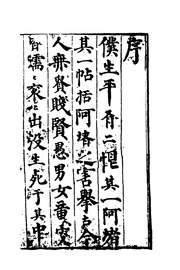 序
僕生平有二恨其一阿堵
其一帖括阿堵之害舉古今
人無貴賤賢愚男女童叟
濡〻出没生死于其中